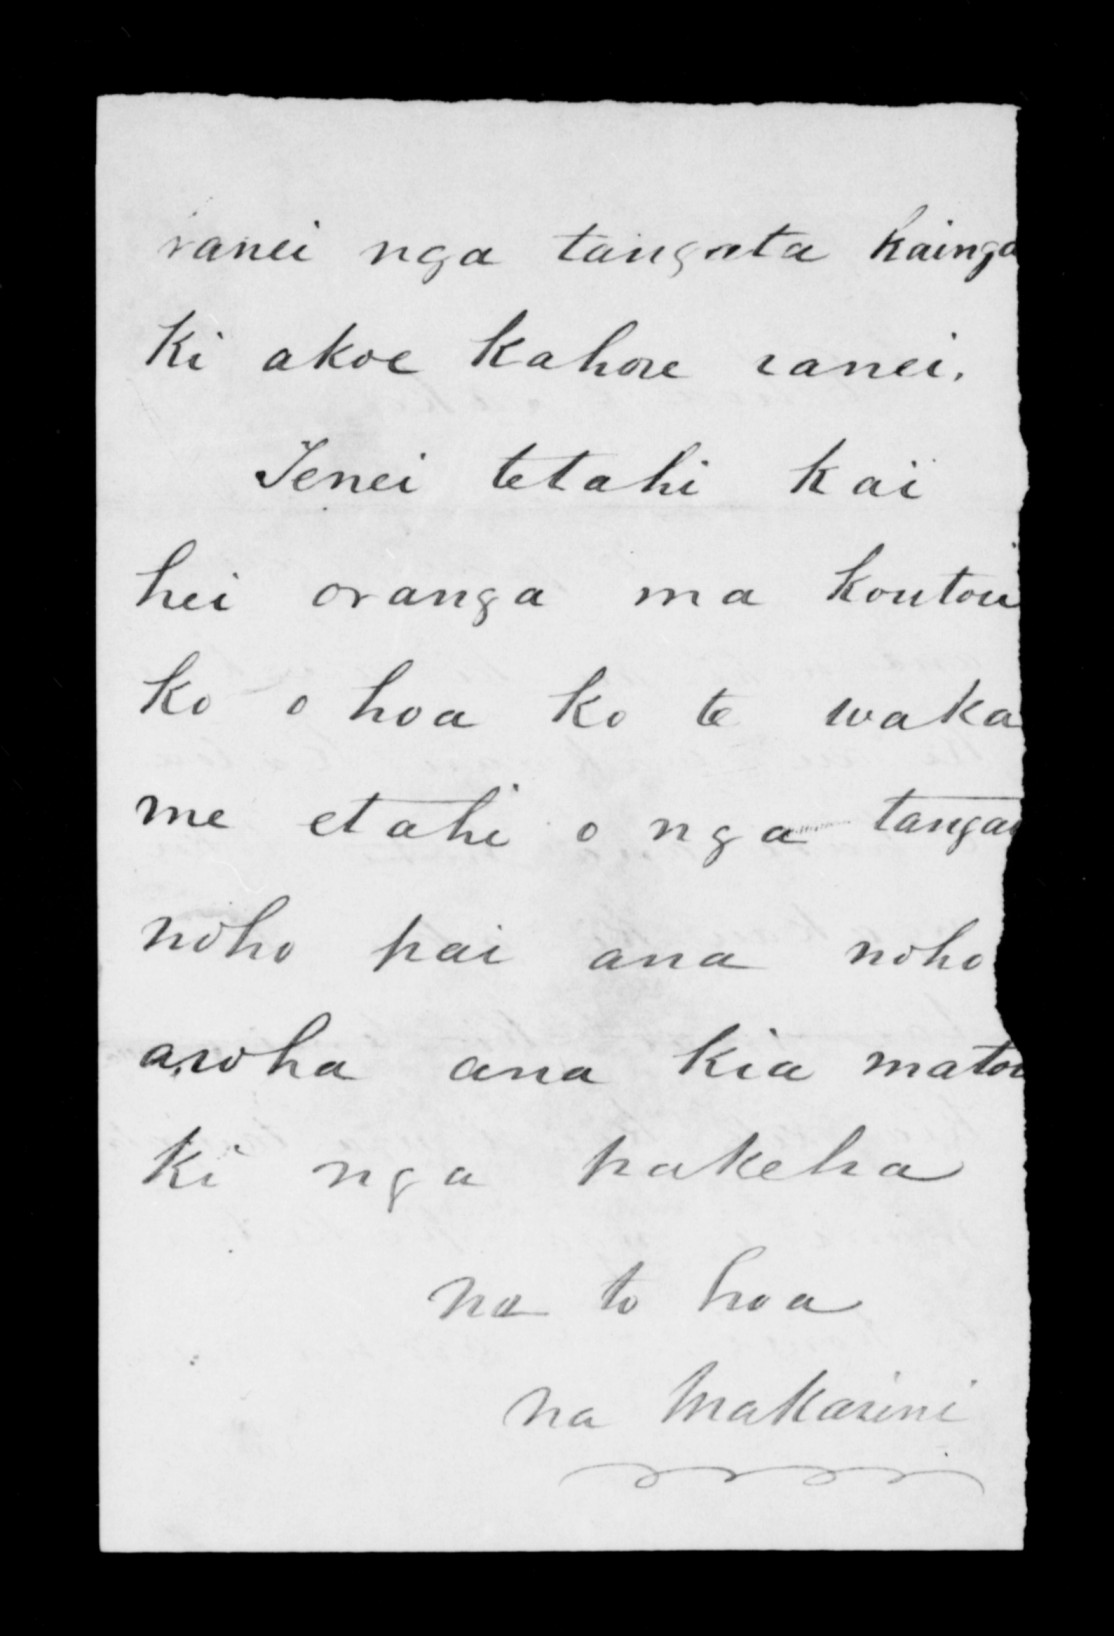 ranei nga tangata kainga
ki akoe kahore ranei.
Tenei tetahi kai
hei oranga ma koutou
ko o hoa ko te waka
me etahi o nga
noho pai ana noho
aroha ana kia matou
ki nga pakeha
na to hoa
na Makarini